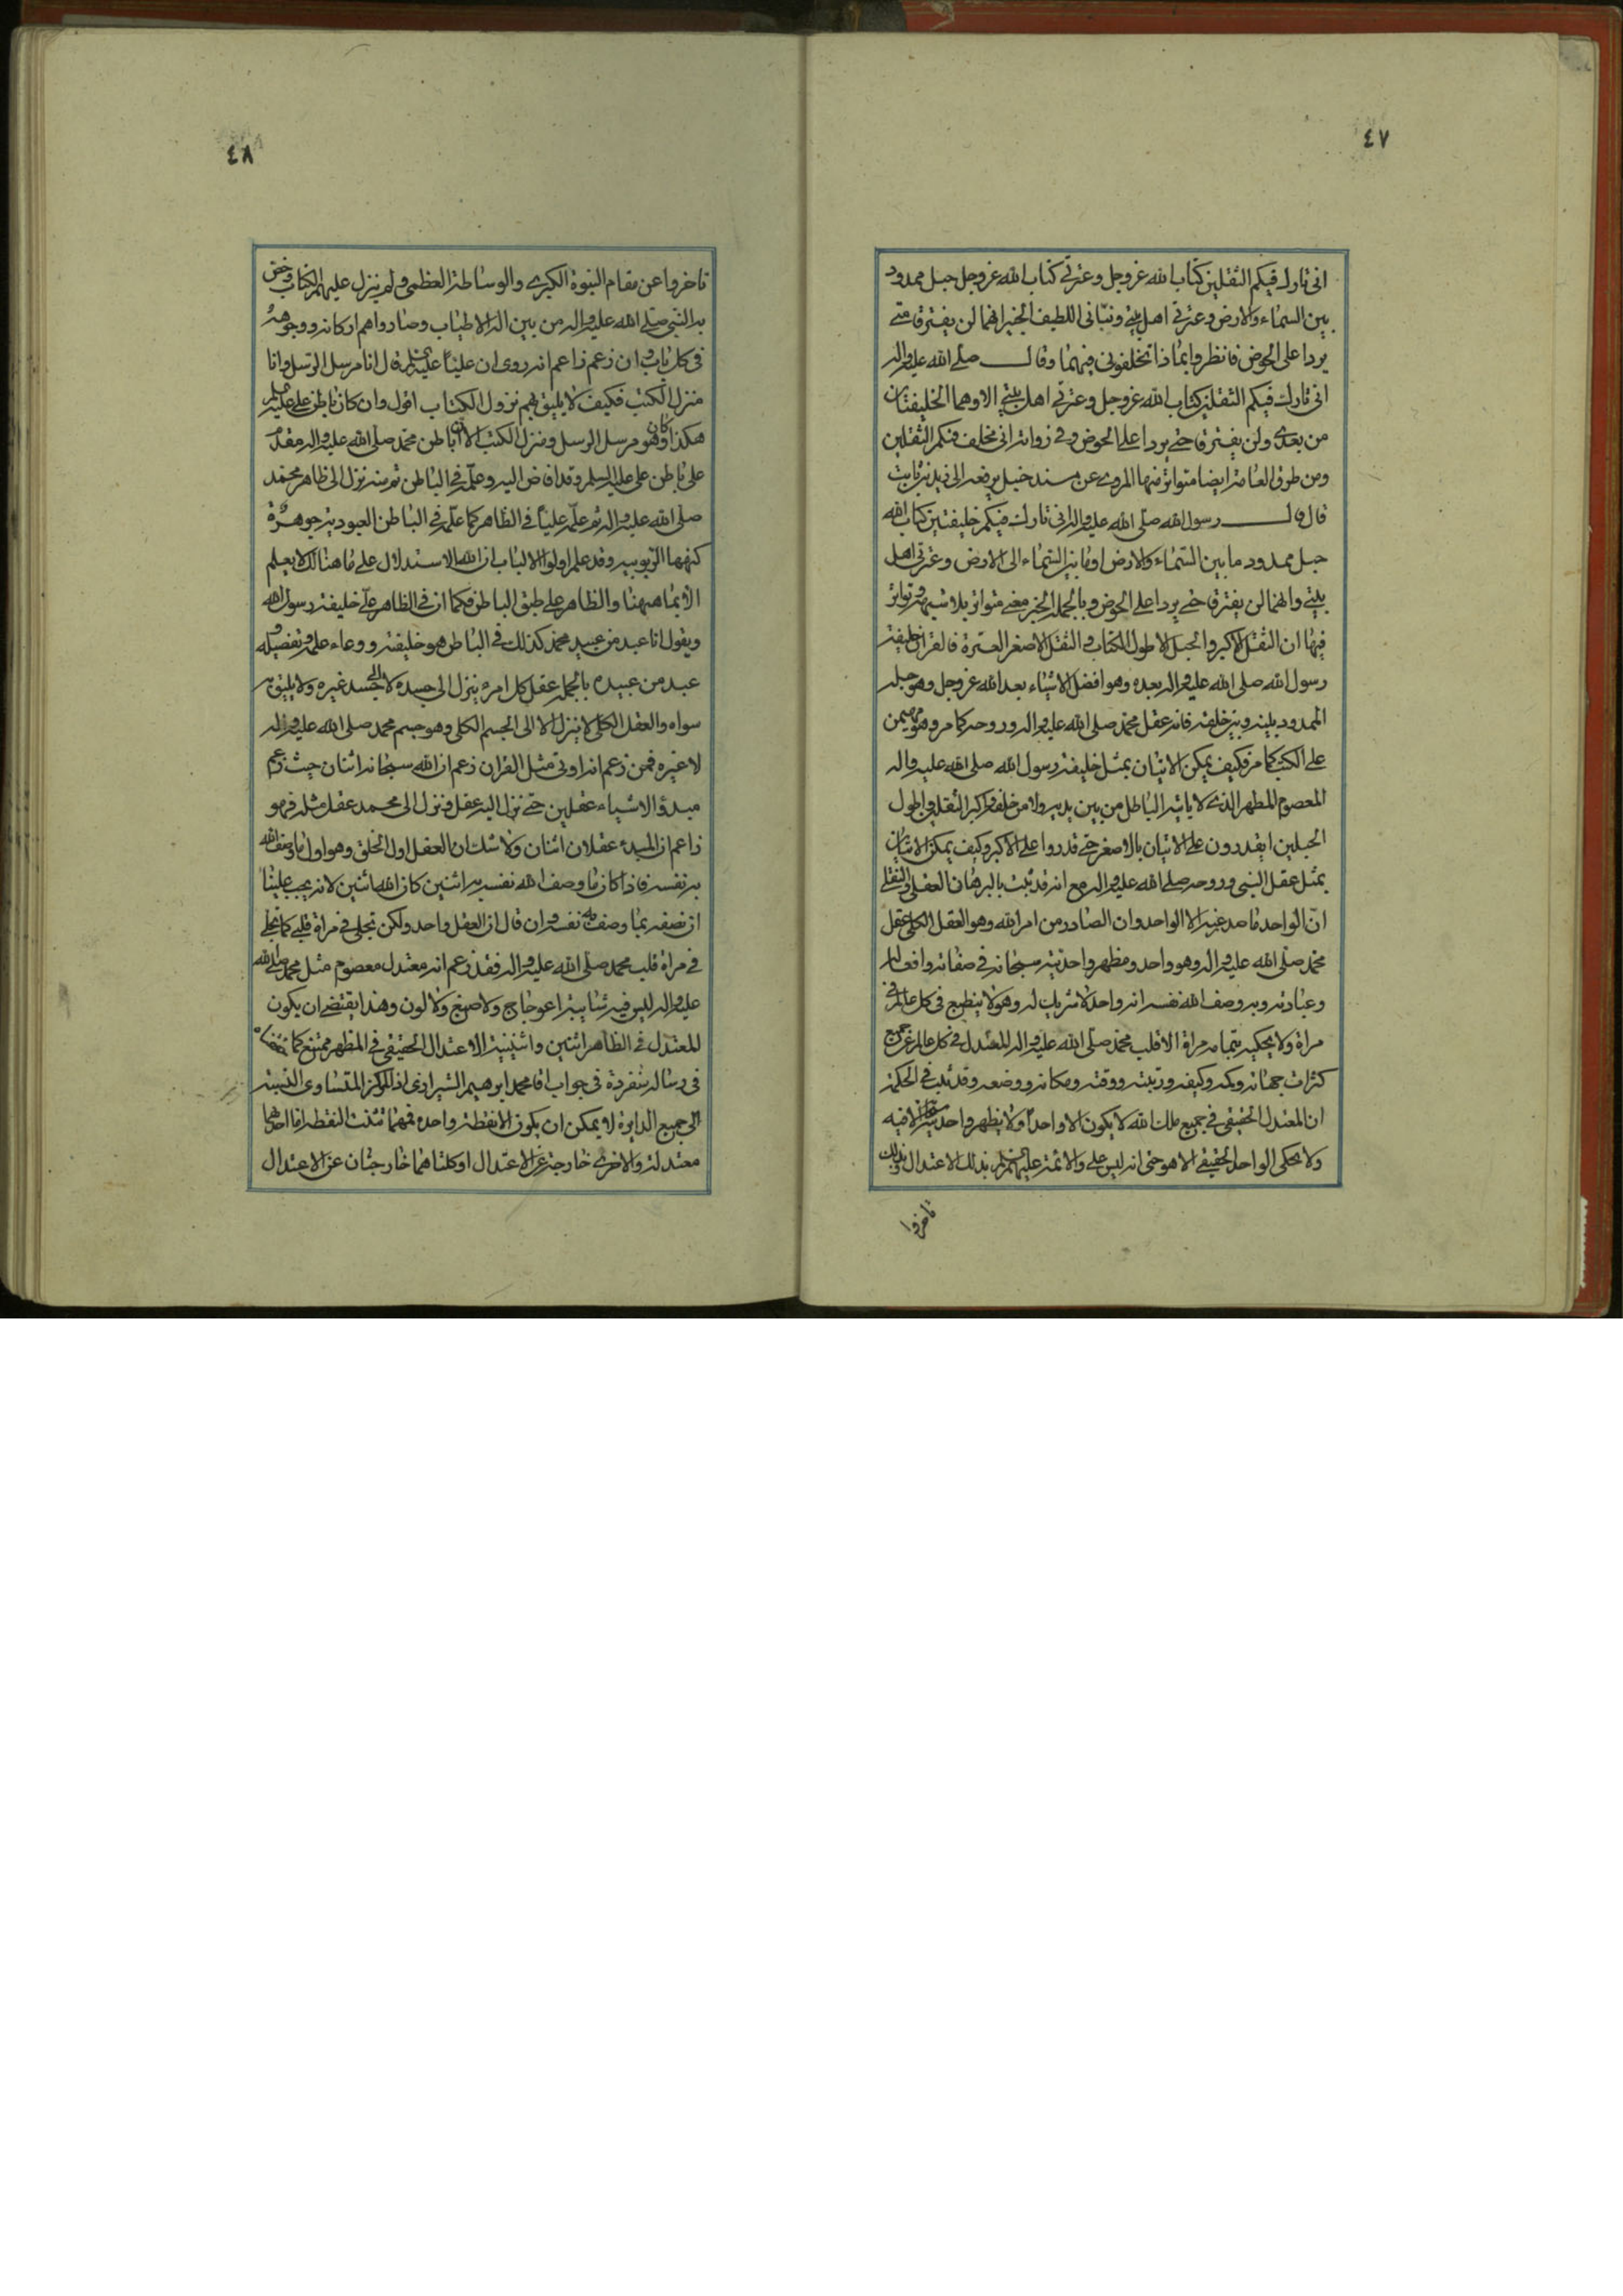 ٤٧
انى تارك فيكم الثقلين كتاب الله عز وجل وعترتى كتاب الله عز وجل حبل ممدود
بين السماء والارض وعترتى اهل بيتى ونبّانى اللطيف الخبير انهما لن يفترقا حتى
يردا على الحوض فانظروا بماذا تخلفونى فيهما وقال صلى الله عليه واله
انى تارك فيكم الثقلين كتاب الله عز وجل وعترتى اهل بيتى الا وهما الخليفتان
من بعدى ولن يفترقا حتى يردا على الحوض وفى رواية انى مخلف فيكم الثقلين
ومن طرق العامة ايضا متواتر منها المروى عن مسند حنبل يرفعه الى زيد بن ثابت
قال قال رسول الله صلى الله عليه واله انى تارك فيكم خليفتين كتاب الله
حبل ممدود ما بين السماء والارض او ما بين السماء الى الارض وعترتى اهل
بيتى وانهما لن يفترقا حتى يردا على الحوض وبالجملة الخبر معنى متواتر بلا شبهة وتواتر
فيها ان الثقل الاكبر والحبل الاطول الكتاب والثقل الاصغر العترة فالقران خليفة
رسول الله صلى الله عليه واله بعده وهو افضل الاشياء بعد الله عز وجل وهو حبله
الممدود بينه وبين خلقه فانه عقل محمد صلى الله عليه واله وروحه كما مر وهو مهيمن
على الكتب كما مر فكيف يمكن الاتيان بمثل خليفة رسول الله صلى الله عليه واله
المعصوم المطهر الذى لا ياتيه الباطل من بين يديه ولا من خلفه واكبر الثقلين واطول
الحبلين ايقدرون على الاتيان بالاصغر حتى قدروا على الاكبر وكيف يمكن الاتيان
بمثل عقل النبى وروحه صلى الله عليه واله مع انه قد ثبت بالبرهان العقلى والنقلى
انّ الواحد ما صدر عنه الا الواحد وان الصادر من امر الله وهو العقل الكلى عقل
محمد صلى الله عليه واله وهو واحد ومظهر واحديته سبحانه فى صفاته وافعاله
وعبادته وبه وصف الله نفسه انه واحد لا شريك له وهو لا ينطبع فى كل عالم فى
مراة ولا يحكيه بتمامه مراة الا قلب محمد صلى الله عليه واله المعتدل فى كل عالم عن جميع
كثرات جهاته وكمه وكيفه ورتبته ووقته ومكانه ووضعه وقد ثبت فى الحكمة
ان المعتدل الحقيقى فى جميع ملك الله لا يكون الا واحداً ولا يظهر واحديته الا فيه
ولا يحكى الواحد الحقيقى الا هو حتى انه ليس على والائمة عليهم السلم بذلك الاعتدال وبذلك
تاخروا
٤٨
تاخروا عن مقام النبوة الكبرى والوساطة العظمى ولم ينزل عليهم الكتاب وخص
به النبى صلى الله عليه واله من بين اله الاطياب وصاروا هم اركانه ووجوهه
فى كل باب وان زعم زاعم انه روى ان علياً عليه السلم قال انا مرسل الرسل وانا
منزل الكتب فكيف لا يليق بهم نزول الكتاب اقول وان كان باطن على عليه السلم
هكذا وكان هو مرسل الرسل ومنزل الكتب الا ان باطن محمد صلى الله عليه واله مقدم
على باطن على عليه السلم وقد افاض اليه وعلّمه فى الباطن ثم منه نزل الى ظاهر محمد
صلى الله عليه واله ثم علّم علياً فى الظاهر كما علّمه فى الباطن العبودية جوهرة
كنهها الربوبية وقد علم اولوا الالباب ان الاستدلال على ما هنالك لا يعلم
الا بما هيهنا والظاهر على طبق الباطن فكما ان فى الظاهر على خليفة رسول الله
ويقول انا عبد من عبيد محمد كذلك فى الباطن هو خليفته ووعاء علمه وتفصيله و
عبد من عبيده بالجملة عقل كل امرء ينزل الى جسده لا الى جسد غيره ولا يليق به
سواه والعقل الكلى لا ينزل الا الى الجسم الكلى وهو جسم محمد صلى الله عليه واله
لا غيره فمن زعم انه اوتى مثل القران زعم ان الله سبحانه اثنان حيث زعم
مبدؤ الاشياء عقلين حتى نزل اليه عقل ونزل الى محمد عقل مثله فهو
زاعم ان المبدء عقلان اثنان ولا شك ان العقل اول الخلق وهو اول ما وصف الله
به نفسه فاذا كان ما وصف الله نفسه به اثنين كان الله اثنين لانه يجب علينا
ان نصفه بما وصف به نفسه وان قال ان العقل واحد ولكن تجلى فى مراة قلبى كما تجلى
فى مراة قلب محمد صلى الله عليه واله فقد زعم انه معتدل معصوم مثل محمد صلى الله
عليه واله ليس فيه شايبة اعوجاج ولا صبغ ولا لون وهذا يقتضى ان يكون
المعتدل فى الظاهر اثنين واثنينية الاعتدال الحقيقى فى المظهر ممتنع كما
فى رسالة منفردة فى جواب اقا محمد ابرهيم الشيرازى اذ المركز المتساوى النسبة
الى جميع الدايرة لا يمكن ان يكون الا نقطة واحدة فمهما ثنت النقطة اما احدهما
معتدلة والاخرى خارجة عن الاعتدال او كلتاهما خارجتان عن الاعتدال